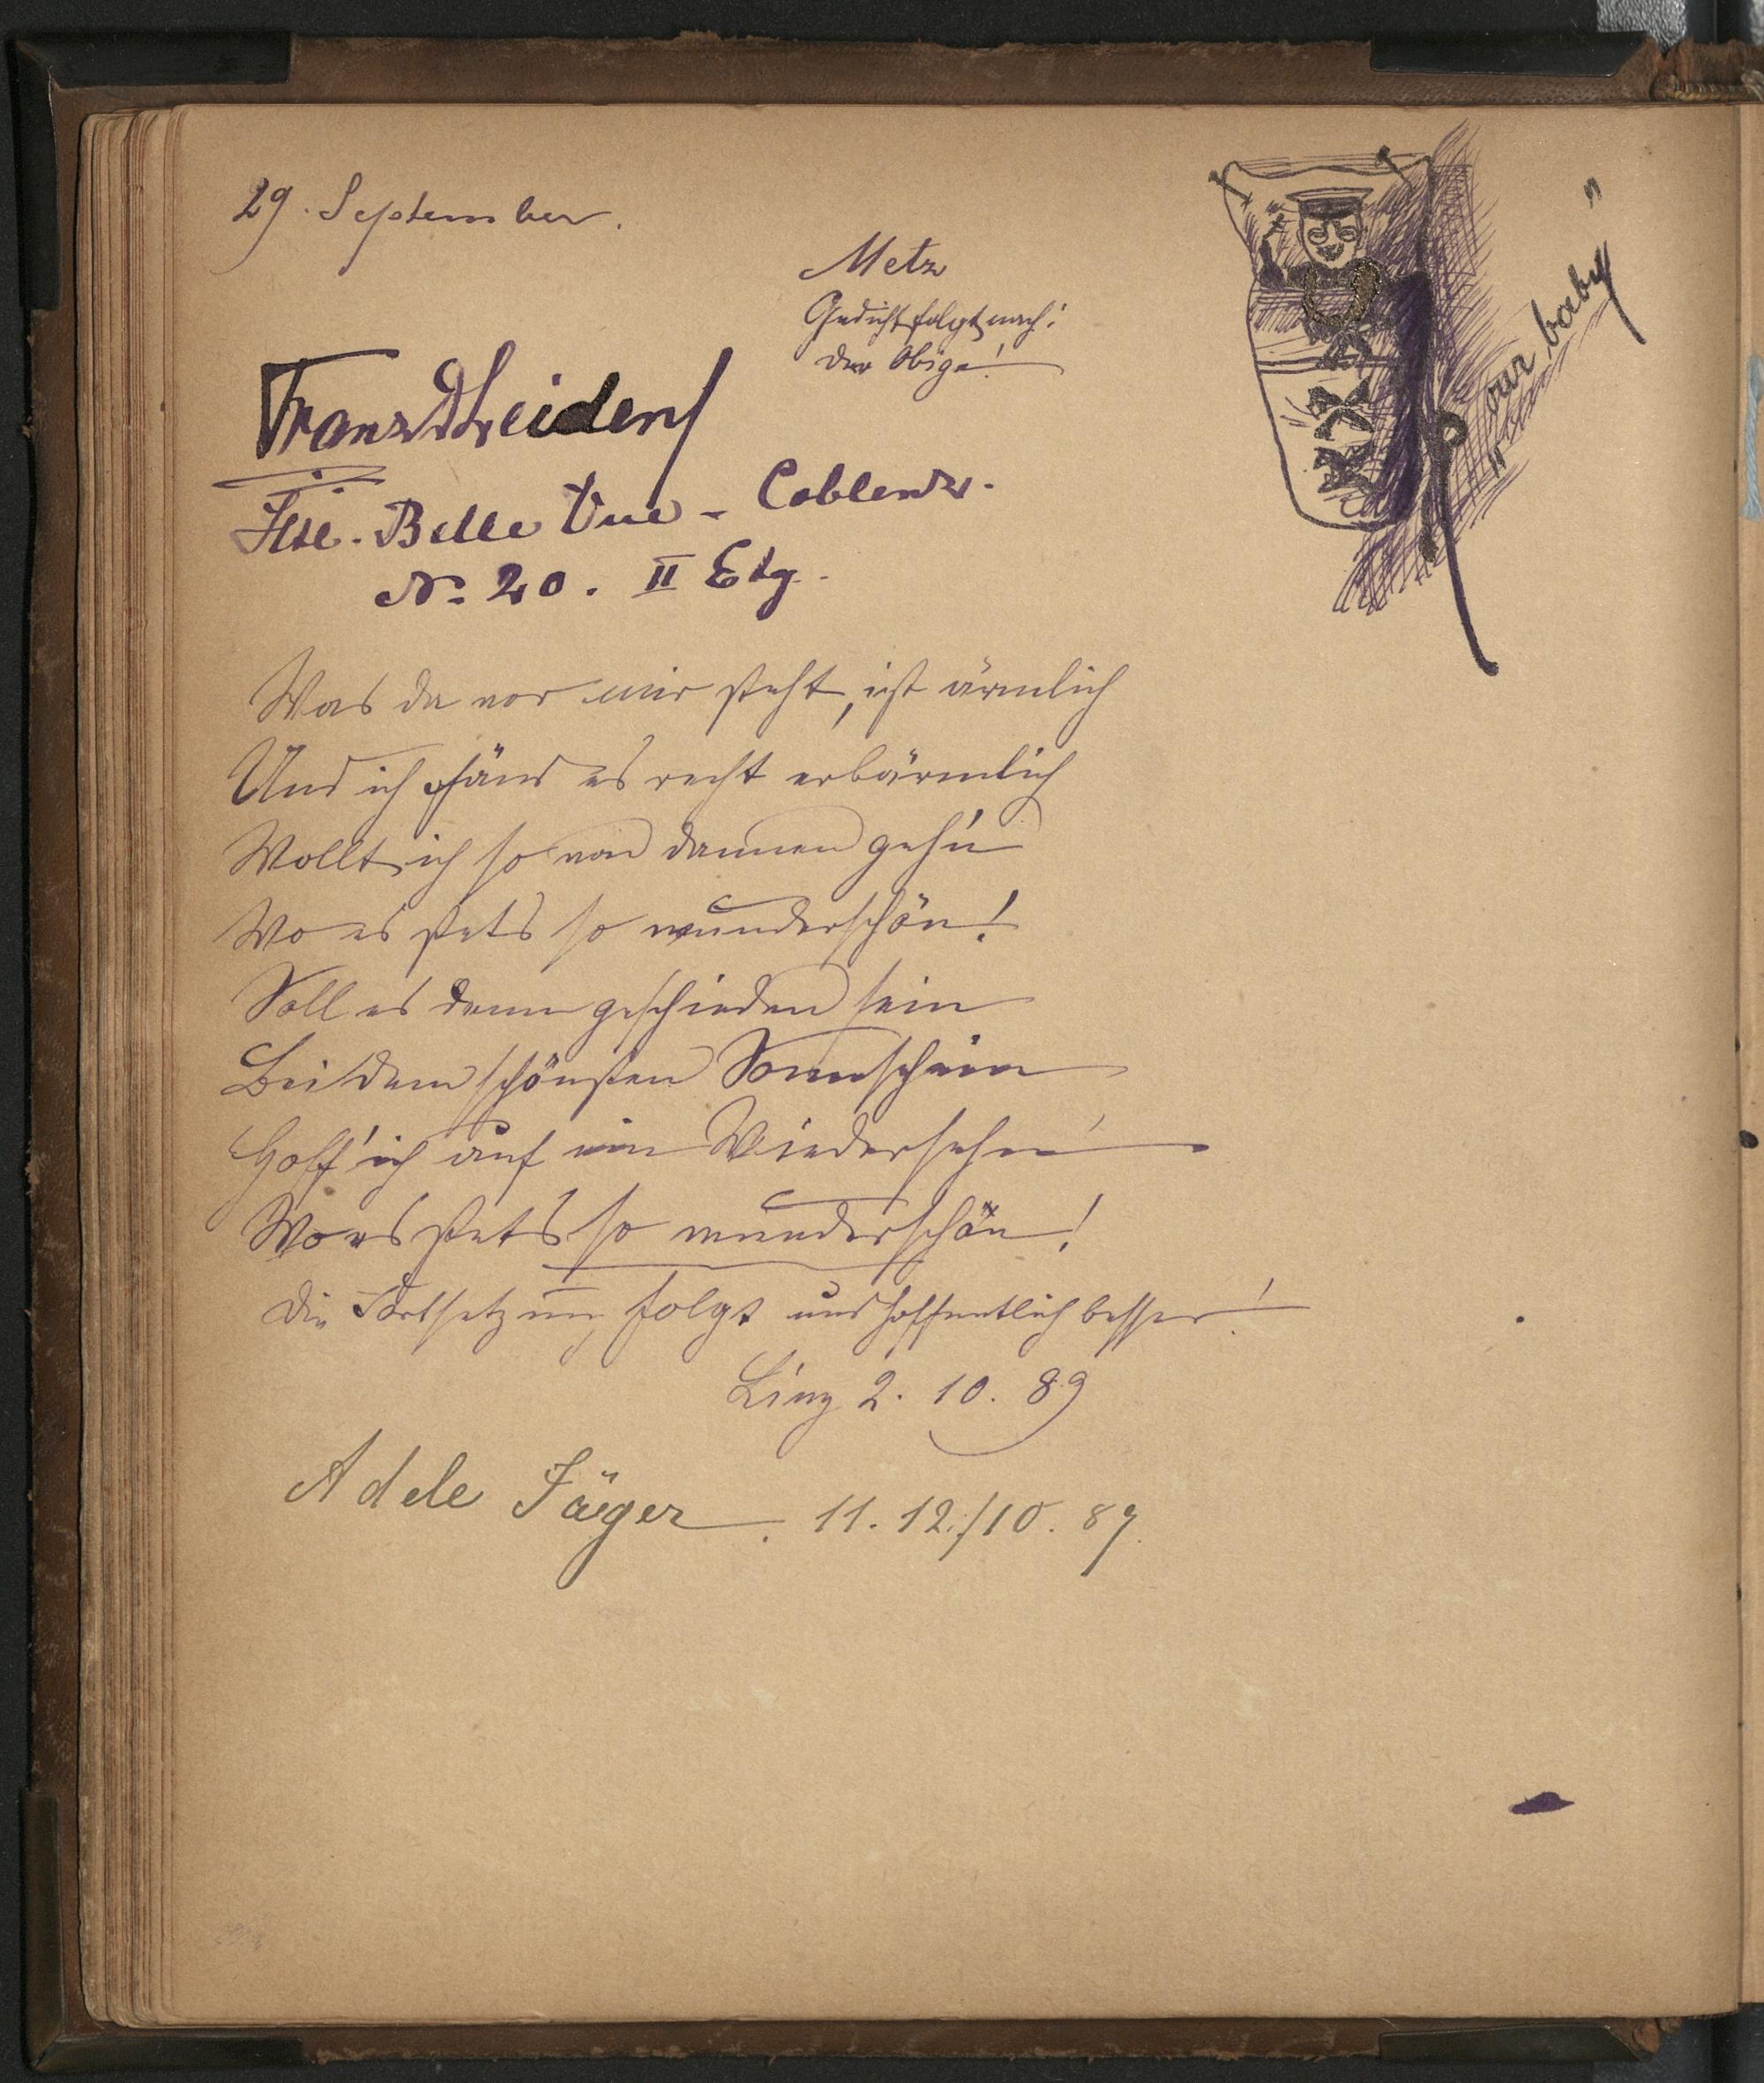 29. September.
Metz
Gedicht folgt nach!
Der Obige!
Franz
Belle Vue - Coblenz.
No 20. II Etg.
"our baby"
Was da vor mir steht, ist ärmlich
Und ich fänd es recht erbärmlich
Wollt ich so von dannen geh'n
Wo es stets so wunderschön!
Soll es denn geschieden sein
Bei dem schönsten Sonnschein
Hoff' ich auf ein Wiedersehn'
Wo es stets so wunderschön!
Die Fortsetzung folgt und hoffentlich besser!
Linz 2. 10. 89
Adele Jäger. 11. 12./10. 89.